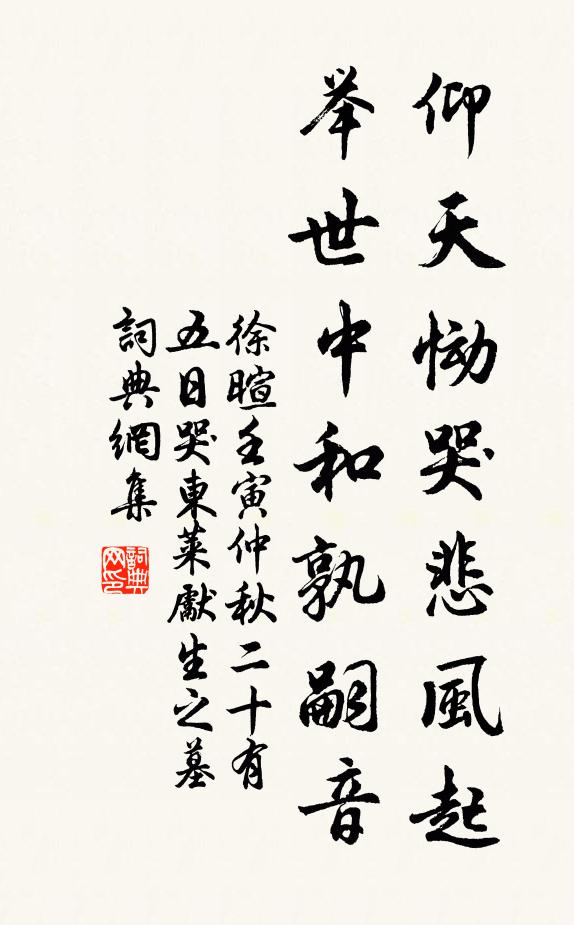 仰天恸哭悲風起
举世中和孰嗣音
徐暄壬寅仲秋二十有
五日哭東萊獻生之墓
詞典網集
詞典网印